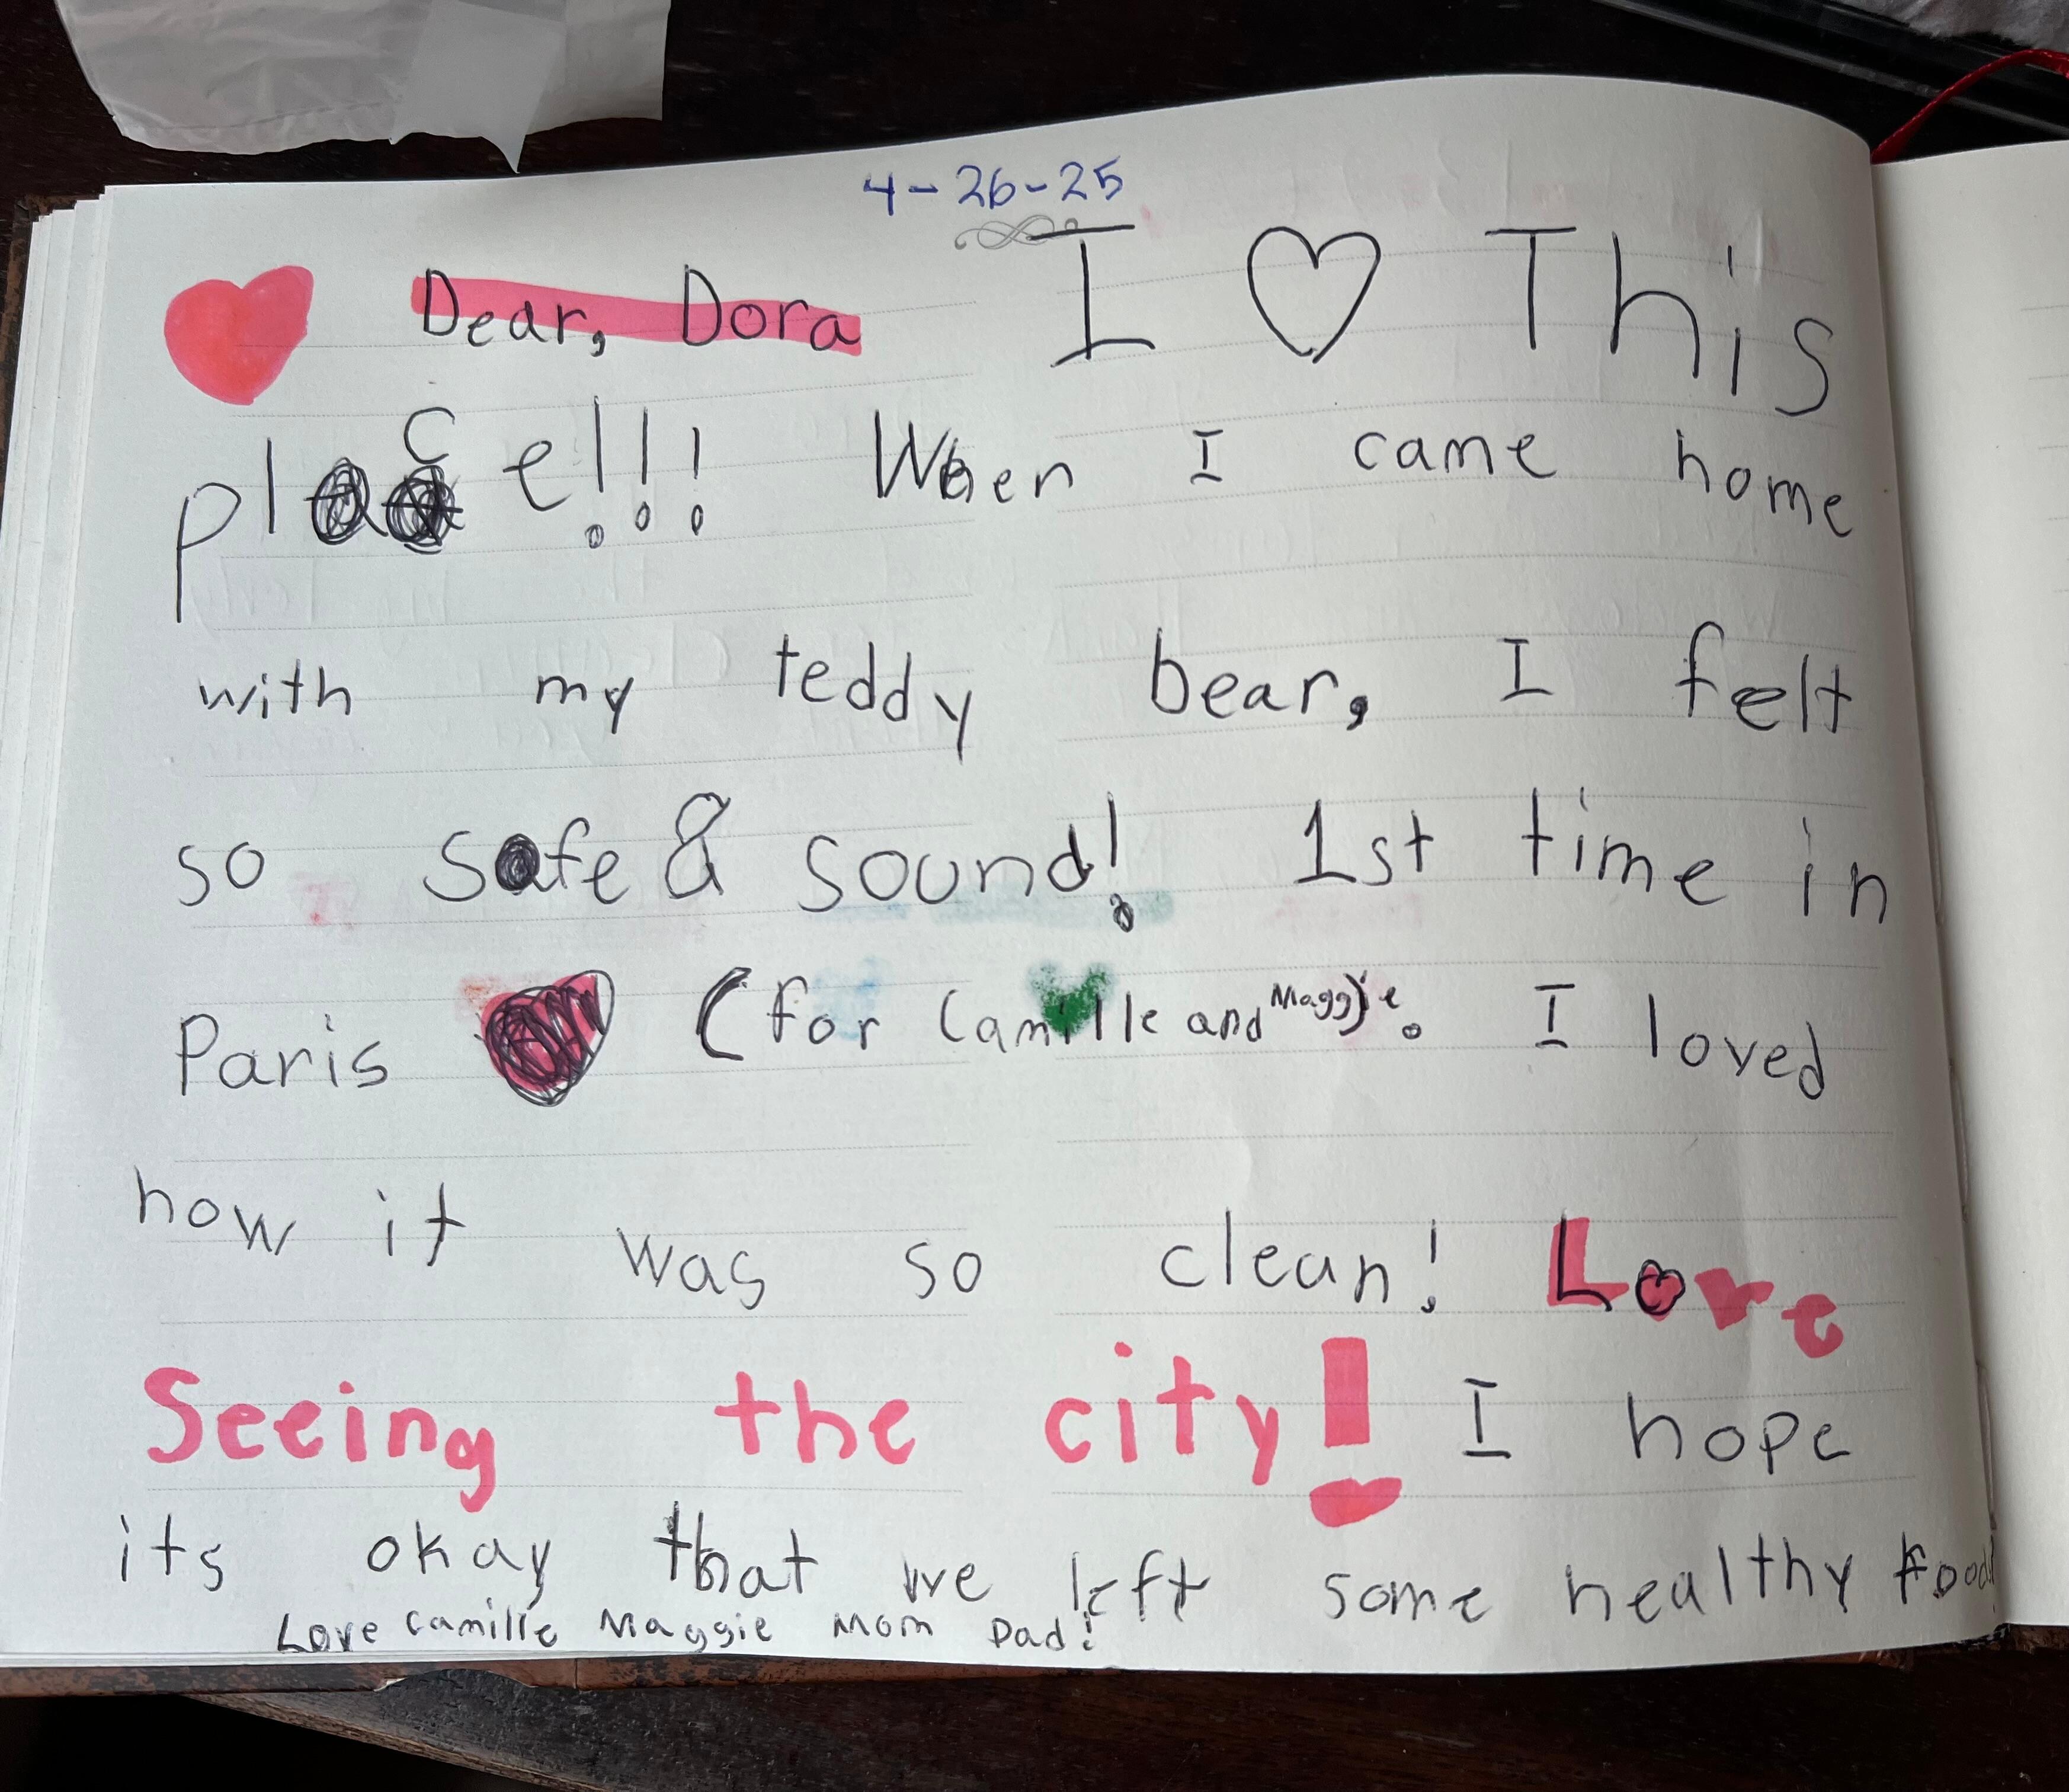 4-26-25
Dear, Dora I ♡ This
place!!! When I came home
with my teddy bear, I felt
so safe & sound! 1st time in
Paris ♥ (for Camille and Maggie). I loved
how it was so clean! Love
Seeing the city! I hope
its okay that we left some healthy food!
Love Camille Maggie Mom Dad!